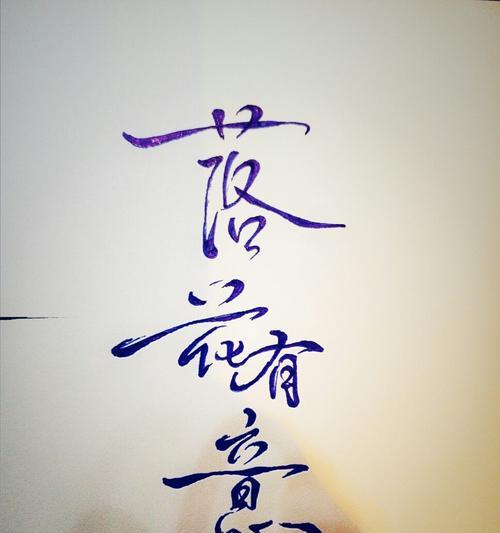 落花有意